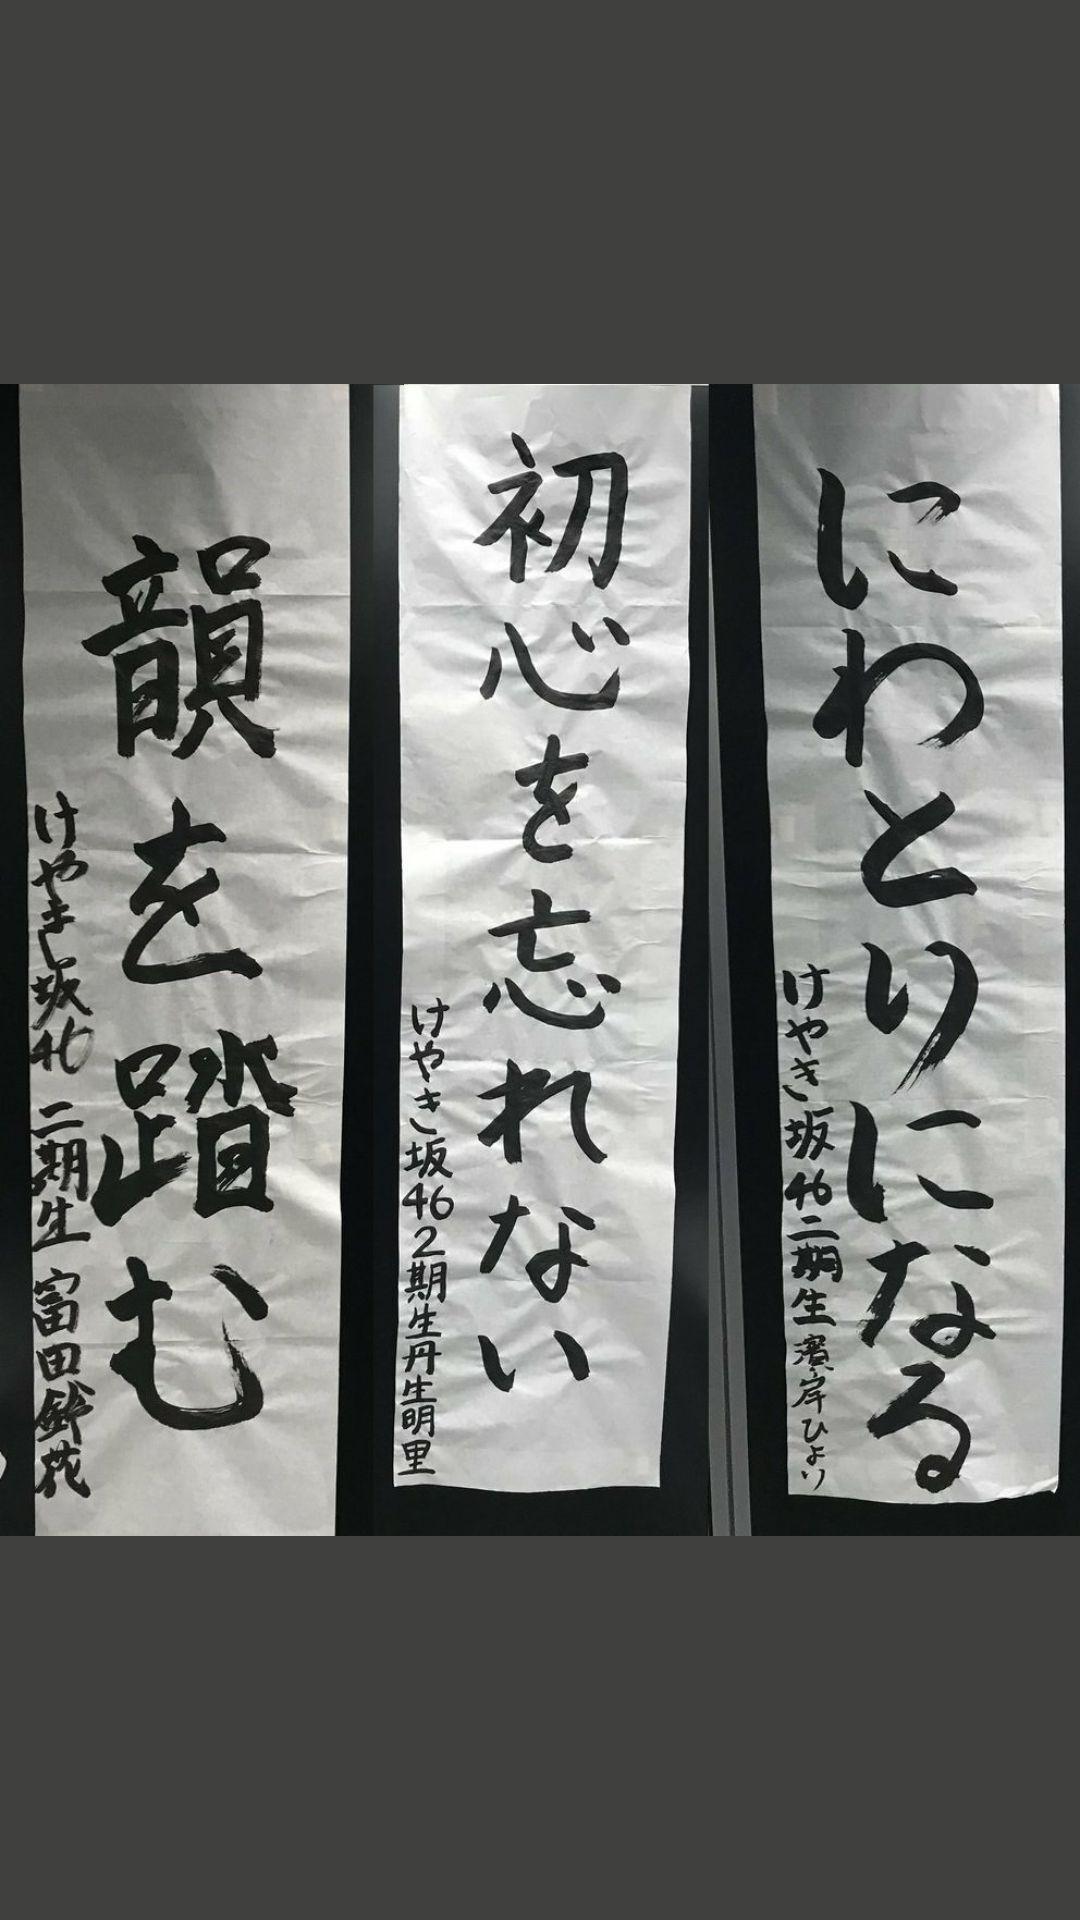 にわとりになる
けやき坂46二期生 濱岸ひより
初心を忘れない
けやき坂462期生丹生明里
韻を踏む
けやき坂46 二期生 富田鈴花